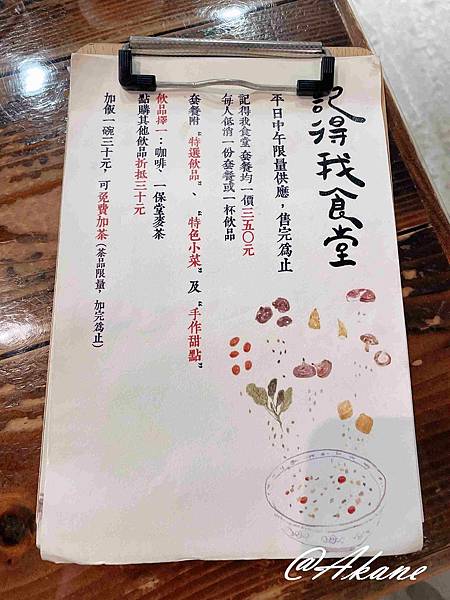 記得我食堂
平日中午限量供應，售完為止
記得我食堂 套餐均一價三五〇元
每人低消一份套餐或一杯飲品
套餐附 "特選飲品"、 "特色小菜" 及 "手作甜點"
飲品擇一：咖啡、一保堂麥茶
點購其他飲品折抵三十元
加飯一碗三十元，可免費加茶(茶品限量，加完為止)
@Akane